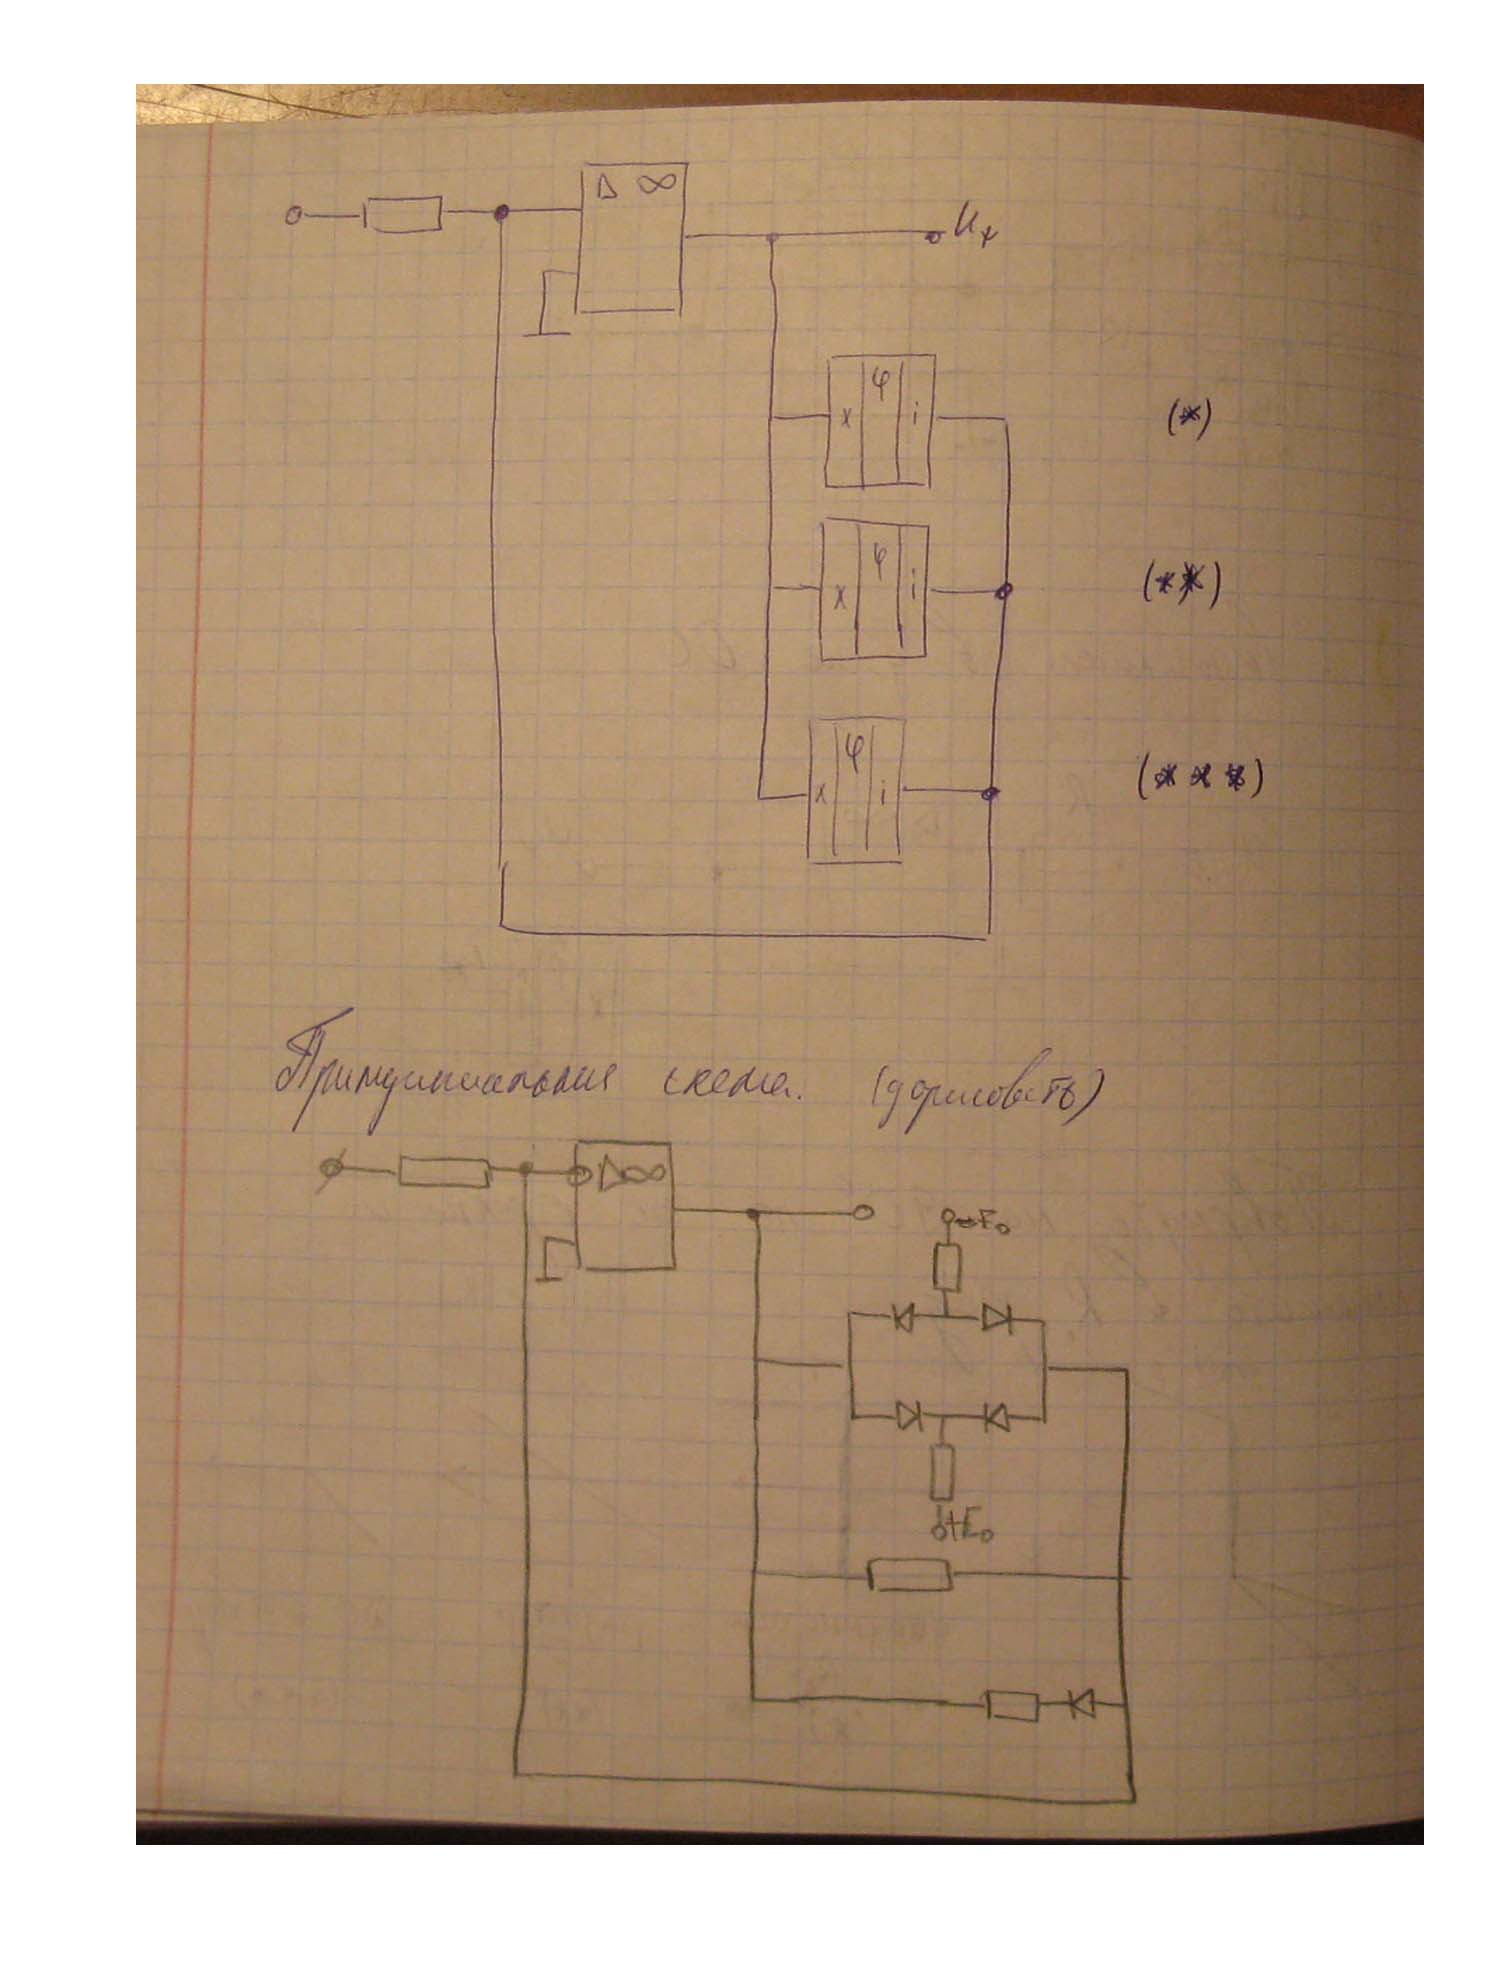 ▷ ∞
Ux
x φ i
(*)
x φ i
(**)
x φ i
(***)
Принципиальная схема. (дорисовать)
▷∞
-E₀
+E₀